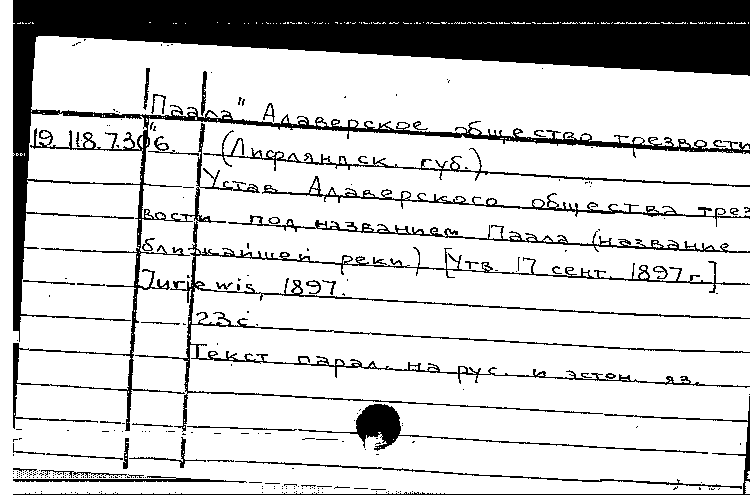 "Паала" Адаверское общество трезвости
19.118.7.306. (Лифляндск. губ.)
Устав Адаверского общества трез
вости под названием Паала (название
ближайшей реки) [Утв. 17 сент. 1897 г.]
Jurjewis, 1897.
23 с.
Текст парал. на рус. и эстон. яз.